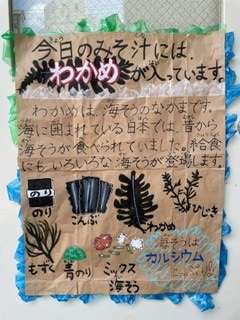 今日のみそ汁には、
わかめが入っています。
わかめは、海そうのなかまです。
海に囲まれている日本では、昔から
海そうが食べられていました。給食
にも、いろいろな海そうが登場します。
のり
のり
こんぶ
わかめ
ひじき
もずく
青のり
ミックス
海そう
海そうは
カルシウム